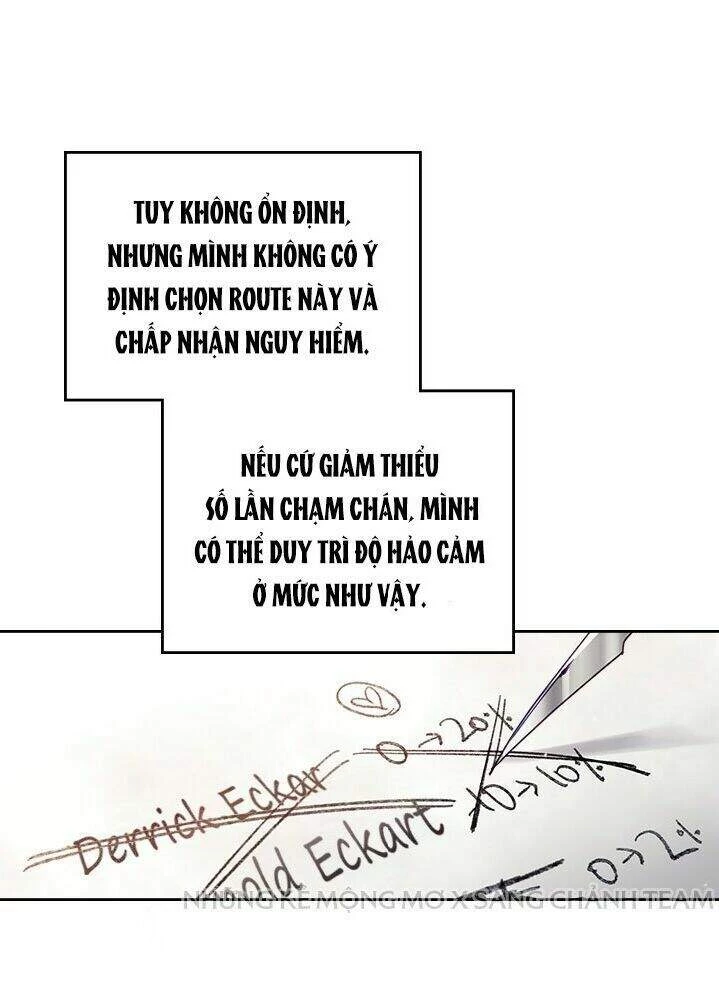 TUY KHÔNG ỔN ĐỊNH,
NHƯNG MÌNH KHÔNG CÓ Ý
ĐỊNH CHỌN ROUTE NÀY VÀ
CHẤP NHẬN NGUY HIỂM.
NẾU CỨ GIẢM THIỂU
SỐ LẦN CHẠM CHÁN, MÌNH
CÓ THỂ DUY TRÌ ĐỘ HẢO CẢM
Ở MỨC NHƯ VẬY.
0→20%
Derrick Eckar
10%
old Eckart
0→2%
NHỮNG KẺ MỘNG MƠ X SANG CHẢNH TEAM